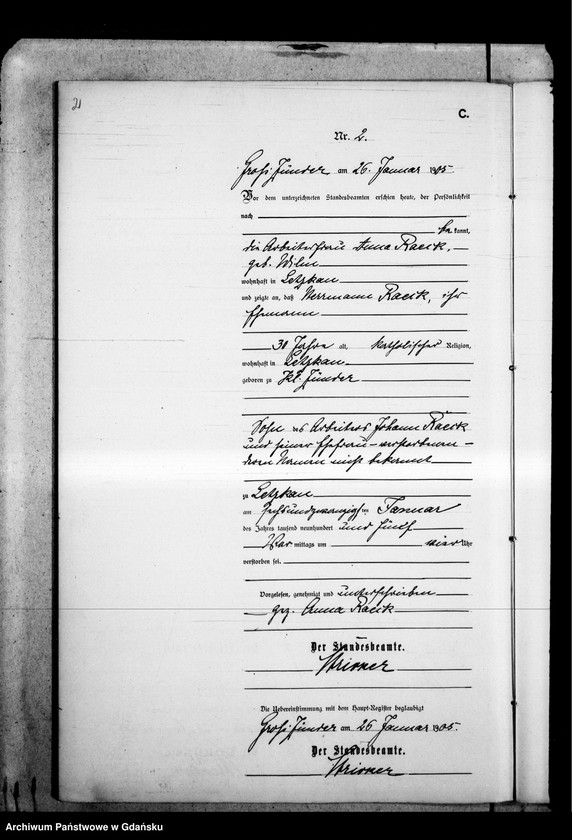 21
C.
Nr. 2.
Groß Zünder am 26. Januar 1905
Vor dem unterzeichneten Standesbeamten erschien heute, der Persönlichkeit
nach
be kannt,
die Arbeiterfrau Anna Racik,
geb. Wilm
wohnhaft in Letzkau
und zeigte an, daß Herrmann Racik, ihr
Ehemann
30 Jahre alt, katholischer Religion,
wohnhaft in Letzkau
geboren zu Kl. Zünder
Sohn des Arbeiters Johann Racik
und seiner Ehefrau – verstorbenen –
deren Namen nicht bekannt
zu Letzkau
am sechsundzwanzigsten Januar
des Jahres tausend neunhundert und fünf
Vor mittags um vier Uhr
verstorben sei.
Vorgelesen, genehmigt und unterschrieben
gez. Anna Racik
Der Standesbeamte.
Die Uebereinstimmung mit dem Haupt-Register beglaubigt
Groß Zünder am 26 Januar 1905.
Der Standesbeamte.
Archiwum Państwowe w Gdańsku